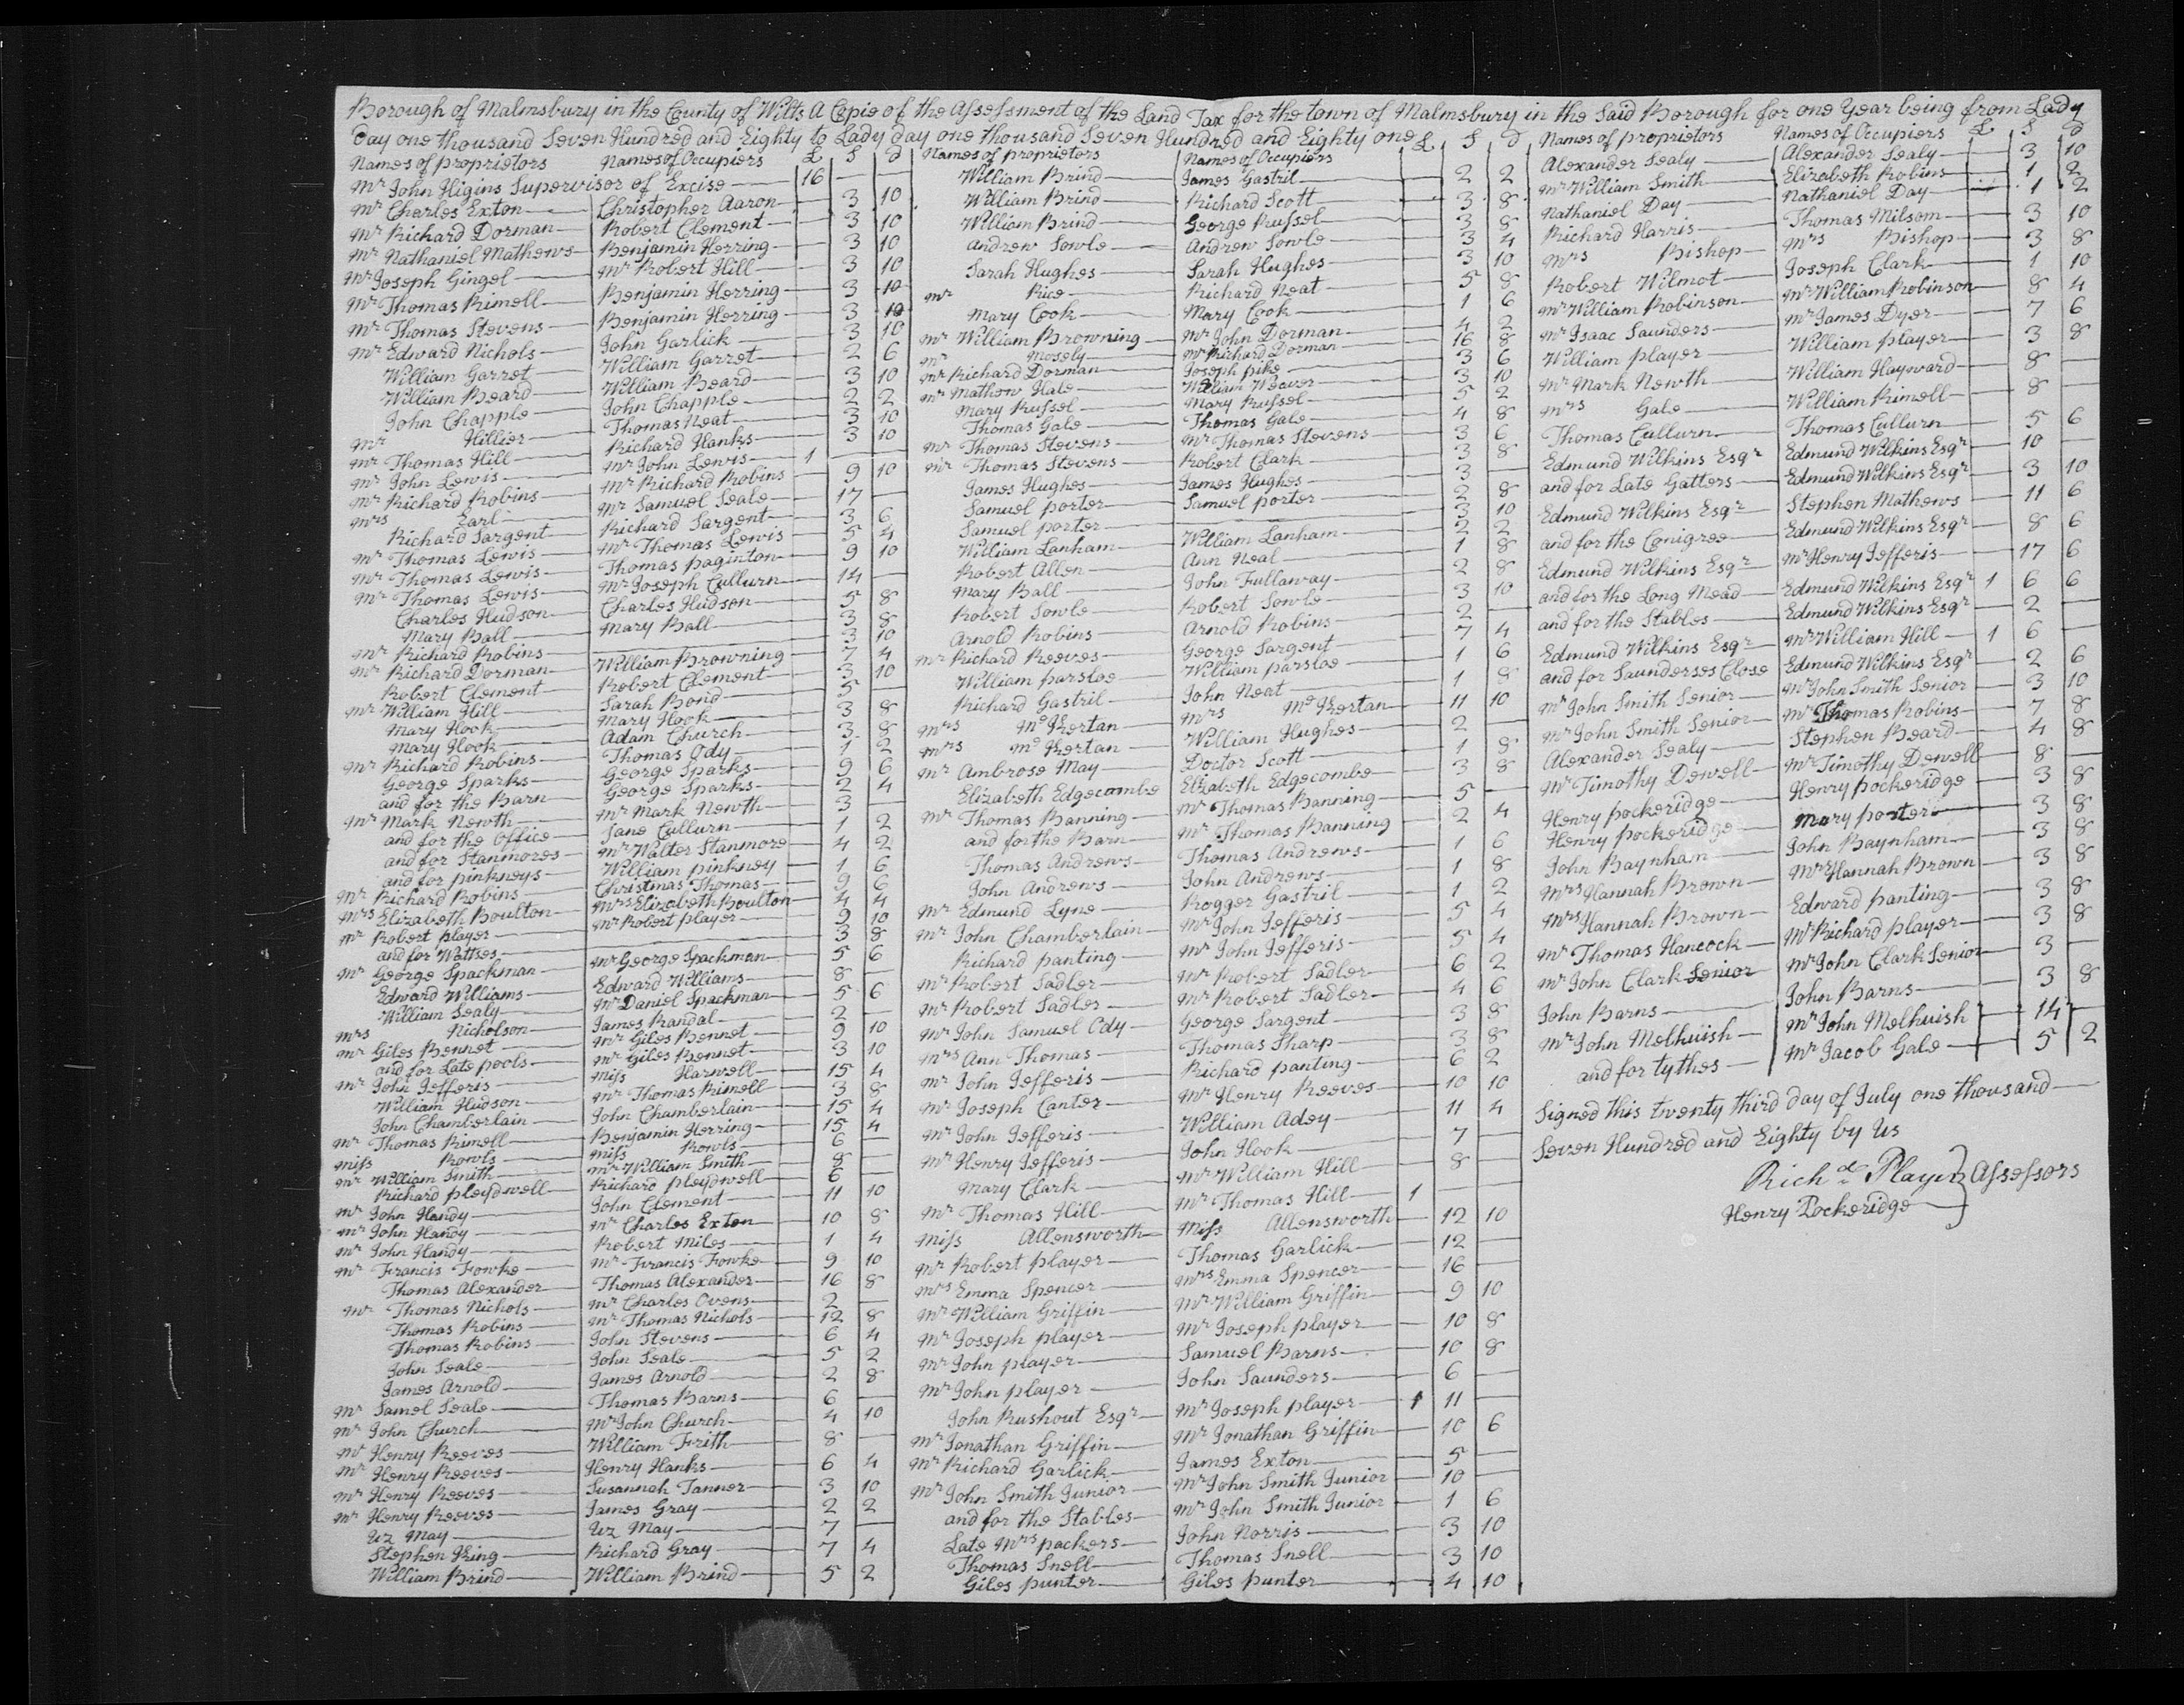 Borough of Malmsbury in the County of Wilts A Copie of the Assessment of the Land Tax for the town of Malmsbury in the Said Borough for one Year being from Lady
Day one thousand Seven Hundred and Eighty to Lady day one thousand Seven Hundred and Eighty one
Names of proprietors Names of Occupiers £ S d
Mr John Higins Supervisor of Excise 16
Mr Charles Exton Christopher Aaron 3 10
Mr Richard Dorman Robert Clement 3 10
Mr Nathaniel Mathews Benjamin Herring 3 10
Mr Joseph Gingel Mr Robert Hill 3 10
Mr Thomas Rimell Benjamin Herring 3 10
Mr Thomas Stevens Benjamin Herring 3 10
Mr Edward Nichols John Garlick 3 10
William Garret William Garret 2 6
William Beard William Beard 3 10
John Chapple John Chapple 2 2
Mr Hillier Thomas Neat 3 10
Mr Thomas Hill Richard Hanks 3 10
Mr John Lewis Mr John Lewis 1
Mr Richard Robins Mr Richard Robins 9 10
Mrs Earl Mr Samuel Seale 17
Richard Sargent Richard Sargent 3 6
Mr Thomas Lewis Mr Thomas Lewis 5 4
Mr Thomas Lewis Thomas paginton 9 10
Mr Thomas Lewis Mr Joseph Cullurn 14
Charles Hudson Charles Hudson 5 8
Mary Ball Mary Ball 3 8
Mr Richard Robins 3 10
Mr Richard Dorman William Browning 7 4
Robert Clement Robert Clement 3 10
Mr William Hill Sarah Bond 5
Mary Hook Mary Hook 3 8
Mary Hook Adam Church 3 8
Mr Richard Robins Thomas Ody 1 2
George Sparks George Sparks 9 6
and for the Barn George Sparks 2 4
Mr Mark Newth Mr Mark Newth 3
and for the Office Jane Cullurn 1 2
and for Stanmores Mr Walter Stanmore 4 2
and for pinkneys William pinkney 1 6
Mr Richard Robins Christmas Thomas 9 6
Mrs Elizabeth Boulton Mrs Elizabeth Boulton 4 4
Mr Robert player Mr Robert player 9 10
and for Wattses 3 8
Mr George Spackman Mr George Spackman 5 6
Edward Williams Edward Williams 8
William Sealy Mr Daniel Spackman 5 6
Mrs Nicholson James Randal 2
Mr Giles Bennet Mr Giles Bennet 9 10
and for Late pools Mr Giles Bennet 3 10
Mr John Jefferis Miss Harwell 15 4
William Hudson Mr Thomas Rimell 3 8
John Chamberlain John Chamberlain 15 4
Mr Thomas Rimell Benjamin Herring 15 4
Miss Rowls Miss Rowls 6
Mr William Smith Mr William Smith 8
Richard pleydwell Richard pleydwell 6
Mr John Handy John Clement 11 10
Mr John Handy Mr Charles Exton 10 8
Mr John Handy Robert Miles 1 4
Mr Francis Fowke Mr Francis Fowke 9 10
Thomas Alexander Thomas Alexander 16 8
Mr Thomas Nichols Mr Charles Ovens 2
Thomas Robins Mr Thomas Nichols 12 8
Thomas Robins John Stevens 6 4
John Seale John Seale 5 2
James Arnold James Arnold 2 8
Mr Samel Seale Thomas Barns 6
Mr John Church Mr John Church 4 10
Mr Henry Reeves William Frith 8
Mr Henry Reeves Henry Hanks 6 4
Mr Henry Reeves Susannah Tanner 3 10
Mr Henry Reeves James Gray 2 2
Uz May Uz May 7
Stephen King Richard Gray 7 4
William Brind William Brind 5 2
Names of proprietors Names of Occupiers £ S d
William Brind James Gastril 2 2
William Brind Richard Scott 3 8
William Brind George Russel 3 8
Andrew Sowle Andrew Sowle 3 4
Sarah Hughes Sarah Hughes 3 10
Mr Rice Richard Neat 5 8
Mary Cook Mary Cook 1 6
Mr William Browning Mr John Dorman 4 2
Mr Mosely Mr Richard Dorman 16 8
Mr Richard Dorman Joseph pike 3 6
Mr Mathew Hale William Weaver 3 10
Mary Russel Mary Russel 5 2
Thomas Gale Thomas Gale 4 8
Mr Thomas Stevens Mr Thomas Stevens 3 6
Mr Thomas Stevens Robert Clark 3 8
James Hughes James Hughes 3
Samuel porter Samuel porter 2 8
Samuel porter 3 10
William Lanham William Lanham 2 2
Robert Allen Ann Neal 1 8
Mary Ball John Fullaway 2 8
Robert Sowle Robert Sowle 3 10
Arnold Robins Arnold Robins 2
Mr Richard Reeves George Sargent 7 4
William parsloe William parsloe 1 6
Richard Gastril John Neat 1 8
Mrs Mc Kertan Mrs Mc Kertan 11 10
Mrs Mc Kertan William Hughes 2
Mr Ambrose May Doctor Scott 1 8
Elizabeth Edgecombe Elizabeth Edgecombe 3 8
Mr Thomas Banning Mr Thomas Banning 5
and for the Barn Mr Thomas Banning 2 4
Thomas Andrews Thomas Andrews 1 6
John Andrews John Andrews 1 8
Mr Edmund Lyne Rogger Gastril 1 2
Mr John Chamberlain Mr John Jefferis 5 4
Richard panting Mr John Jefferis 5 4
Mr Robert Sadler Mr Robert Sadler 6 2
Mr Robert Sadler Mr Robert Sadler 4 6
Mr John Samuel Ody George Sargent 3 8
Mrs Ann Thomas Thomas Sharp 3 8
Mr John Jefferis Richard panting 6 2
Mr Joseph Canter Mr Henry Reeves 10 10
Mr John Jefferis William Adey 11 4
Mr Henry Jefferis John Hook 7
Mary Clark Mr William Hill 8
Mr Thomas Hill Mr Thomas Hill 1
Miss Allensworth Miss Allensworth 12 10
Mr Robert player Thomas Garlick 12
Mrs Emma Spencer Mrs Emma Spencer 16
Mr William Griffin Mr William Griffin 9 10
Mr Joseph player Mr Joseph player 10 8
Mr John player Samuel Barns 10 8
Mr John player John Saunders 6
John Rushout Esqr Mr Joseph player 1 11
Mr Jonathan Griffin Mr Jonathan Griffin 10 6
Mr Richard Garlick James Exton 5
Mr John Smith Junior Mr John Smith Junior 10
and for the Stables Mr John Smith Junior 1 6
Late Mrs packers John Norris 3 10
Thomas Snell Thomas Snell 3 10
Giles punter Giles punter 4 10
Names of proprietors Names of Occupiers £ S d
Alexander Sealy Alexander Sealy 3 10
Mr William Smith Elizabeth Robins 1 2
Nathaniel Day Nathaniel Day 1 2
Richard Harris Thomas Milsom 3 10
Mrs Bishop Mrs Bishop 3 8
Robert Wilmot Joseph Clark 1 10
Mr William Robinson Mr William Robinson 8 4
Mr Isaac Saunders Mr James Dyer 7 6
William player William player 3 8
Mr Mark Newth William Hayward 8
Mrs Gale William Rimell 8
Thomas Cullurn Thomas Cullurn 5 6
Edmund Wilkins Esqr Edmund Wilkins Esqr 10
and for Late Gatters Edmund Wilkins Esqr 3 10
Edmund Wilkins Esqr Stephen Mathews 11 6
and for the Conigree Edmund Wilkins Esqr 8 6
Edmund Wilkins Esqr Mr Henry Jefferis 17 6
and for the Long Mead Edmund Wilkins Esqr 1 6 6
and for the Stables Edmund Wilkins Esqr 2
Edmund Wilkins Esqr Mr William Hill 1 6
and for Saunderses Close Edmund Wilkins Esqr 2 6
Mr John Smith Senior Mr John Smith Senior 3 10
Mr John Smith Senior Mr Thomas Robins 7 8
Alexander Sealy Stephen Beard 4 8
Mr Timothy Dewell Mr Timothy Dewell 8
Henry pockeridge Henry pockeridge 3 8
Henry pockeridge Mary porter 3 8
John Baynham John Baynham 3 8
Mrs Hannah Brown Mrs Hannah Brown 3 8
Mrs Hannah Brown Edward panting 3 8
Mr Thomas Hancock Mr Richard player 3 8
Mr John Clark Senior Mr John Clark Senior 3
John Barns John Barns 3 8
Mr John Melhuish Mr John Melhuish 14
and for tythes Mr Jacob Gale 5 2
Signed this twenty third day of July one thousand
Seven Hundred and Eighty by Us
Richd Player Assessors
Henry Pockeridge